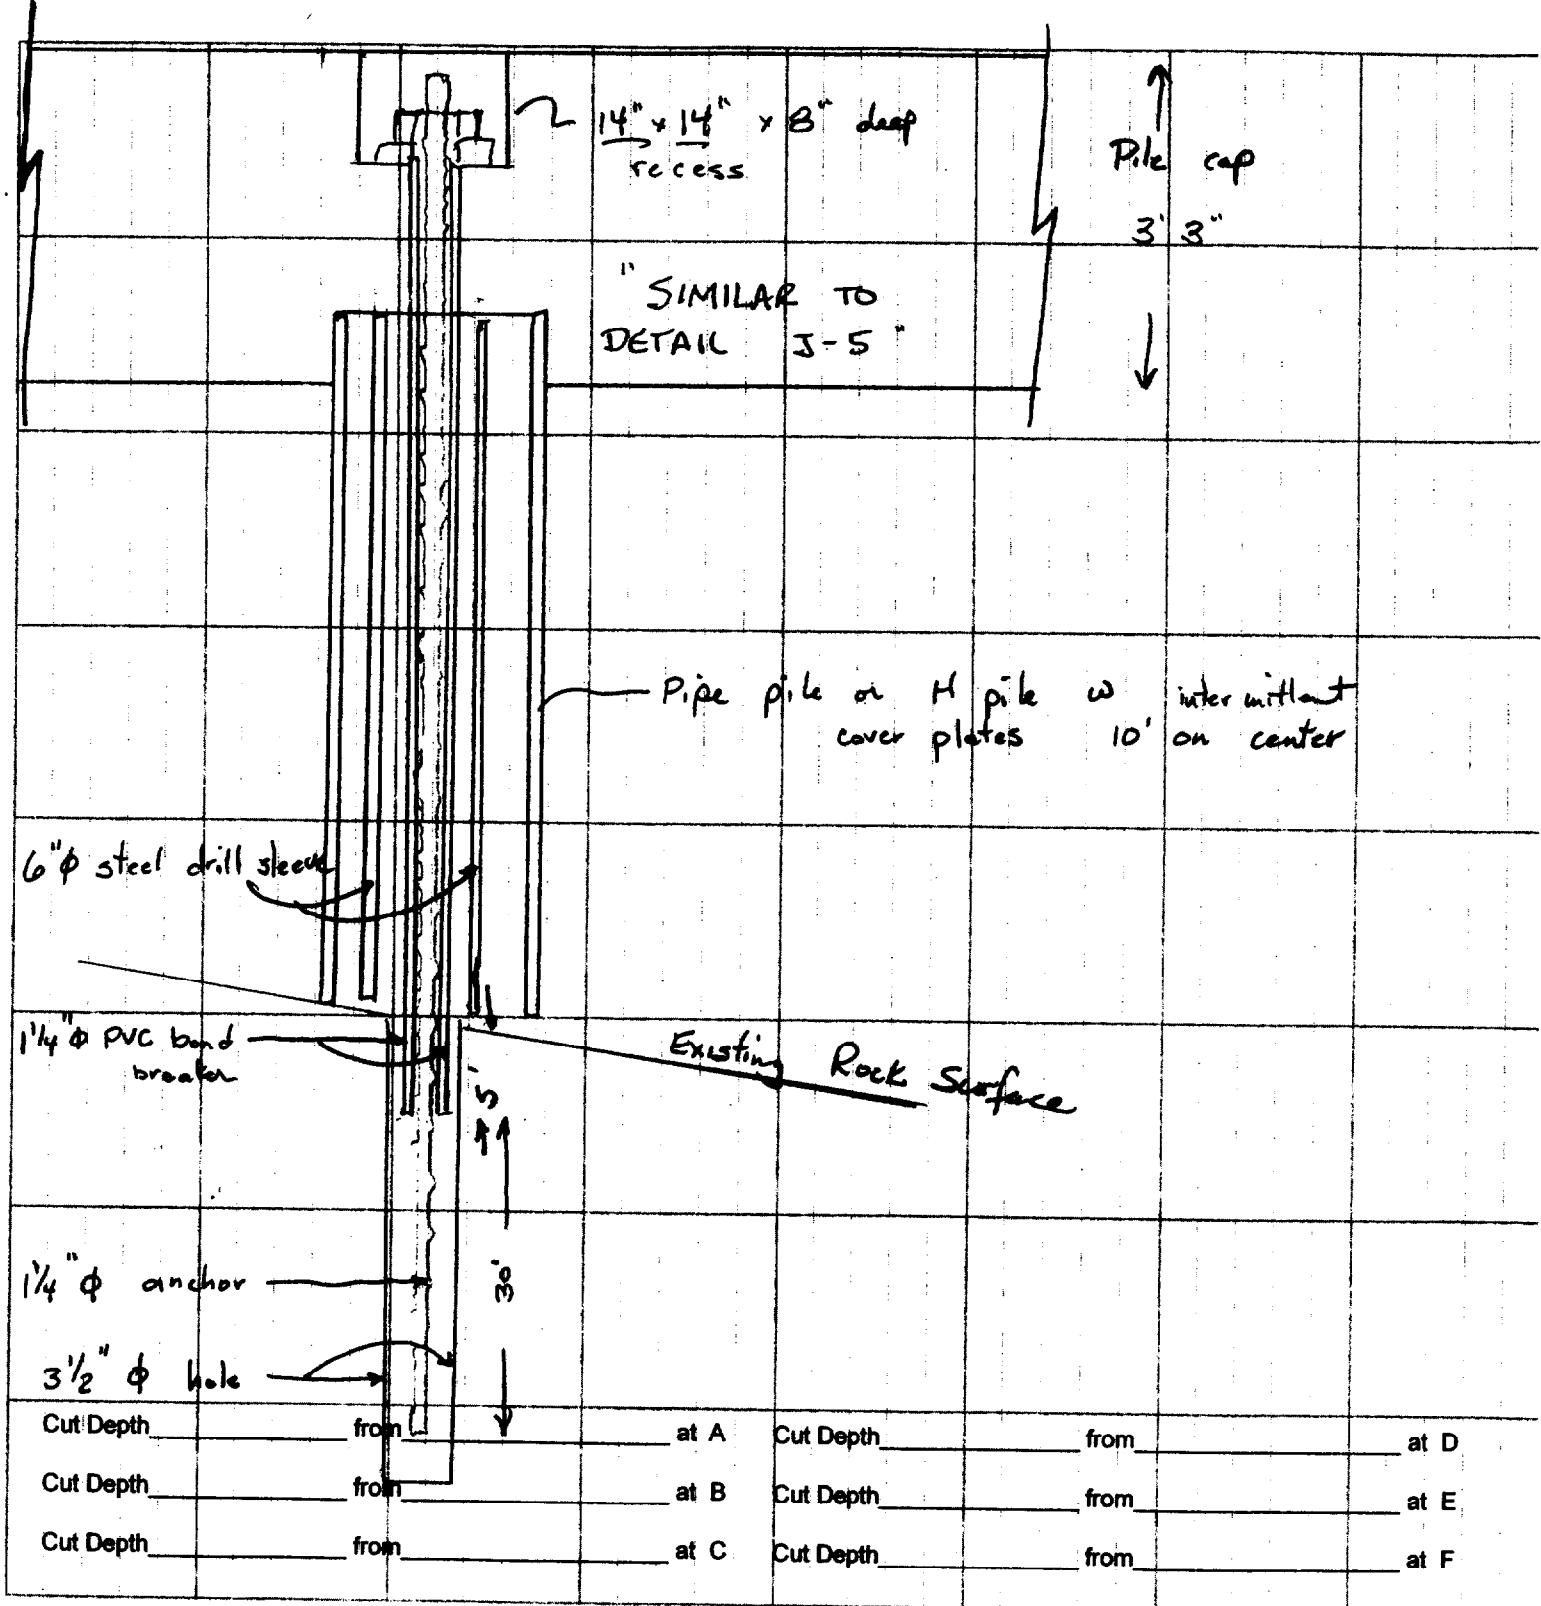 14" x 14" x 8" deep
recess
Pile cap
3' 3"
"SIMILAR TO
DETAIL J-5"
Pipe pile or H pile w intermittent
cover plates 10' on center
6"ϕ steel drill sleeve
1 1/4"ϕ PVC bond
breaker
Existing Rock Surface
5'
1 1/4"ϕ anchor
30'
3 1/2"ϕ hole
Cut Depth from at A Cut Depth from at D
Cut Depth from at B Cut Depth from at E
Cut Depth from at C Cut Depth from at F